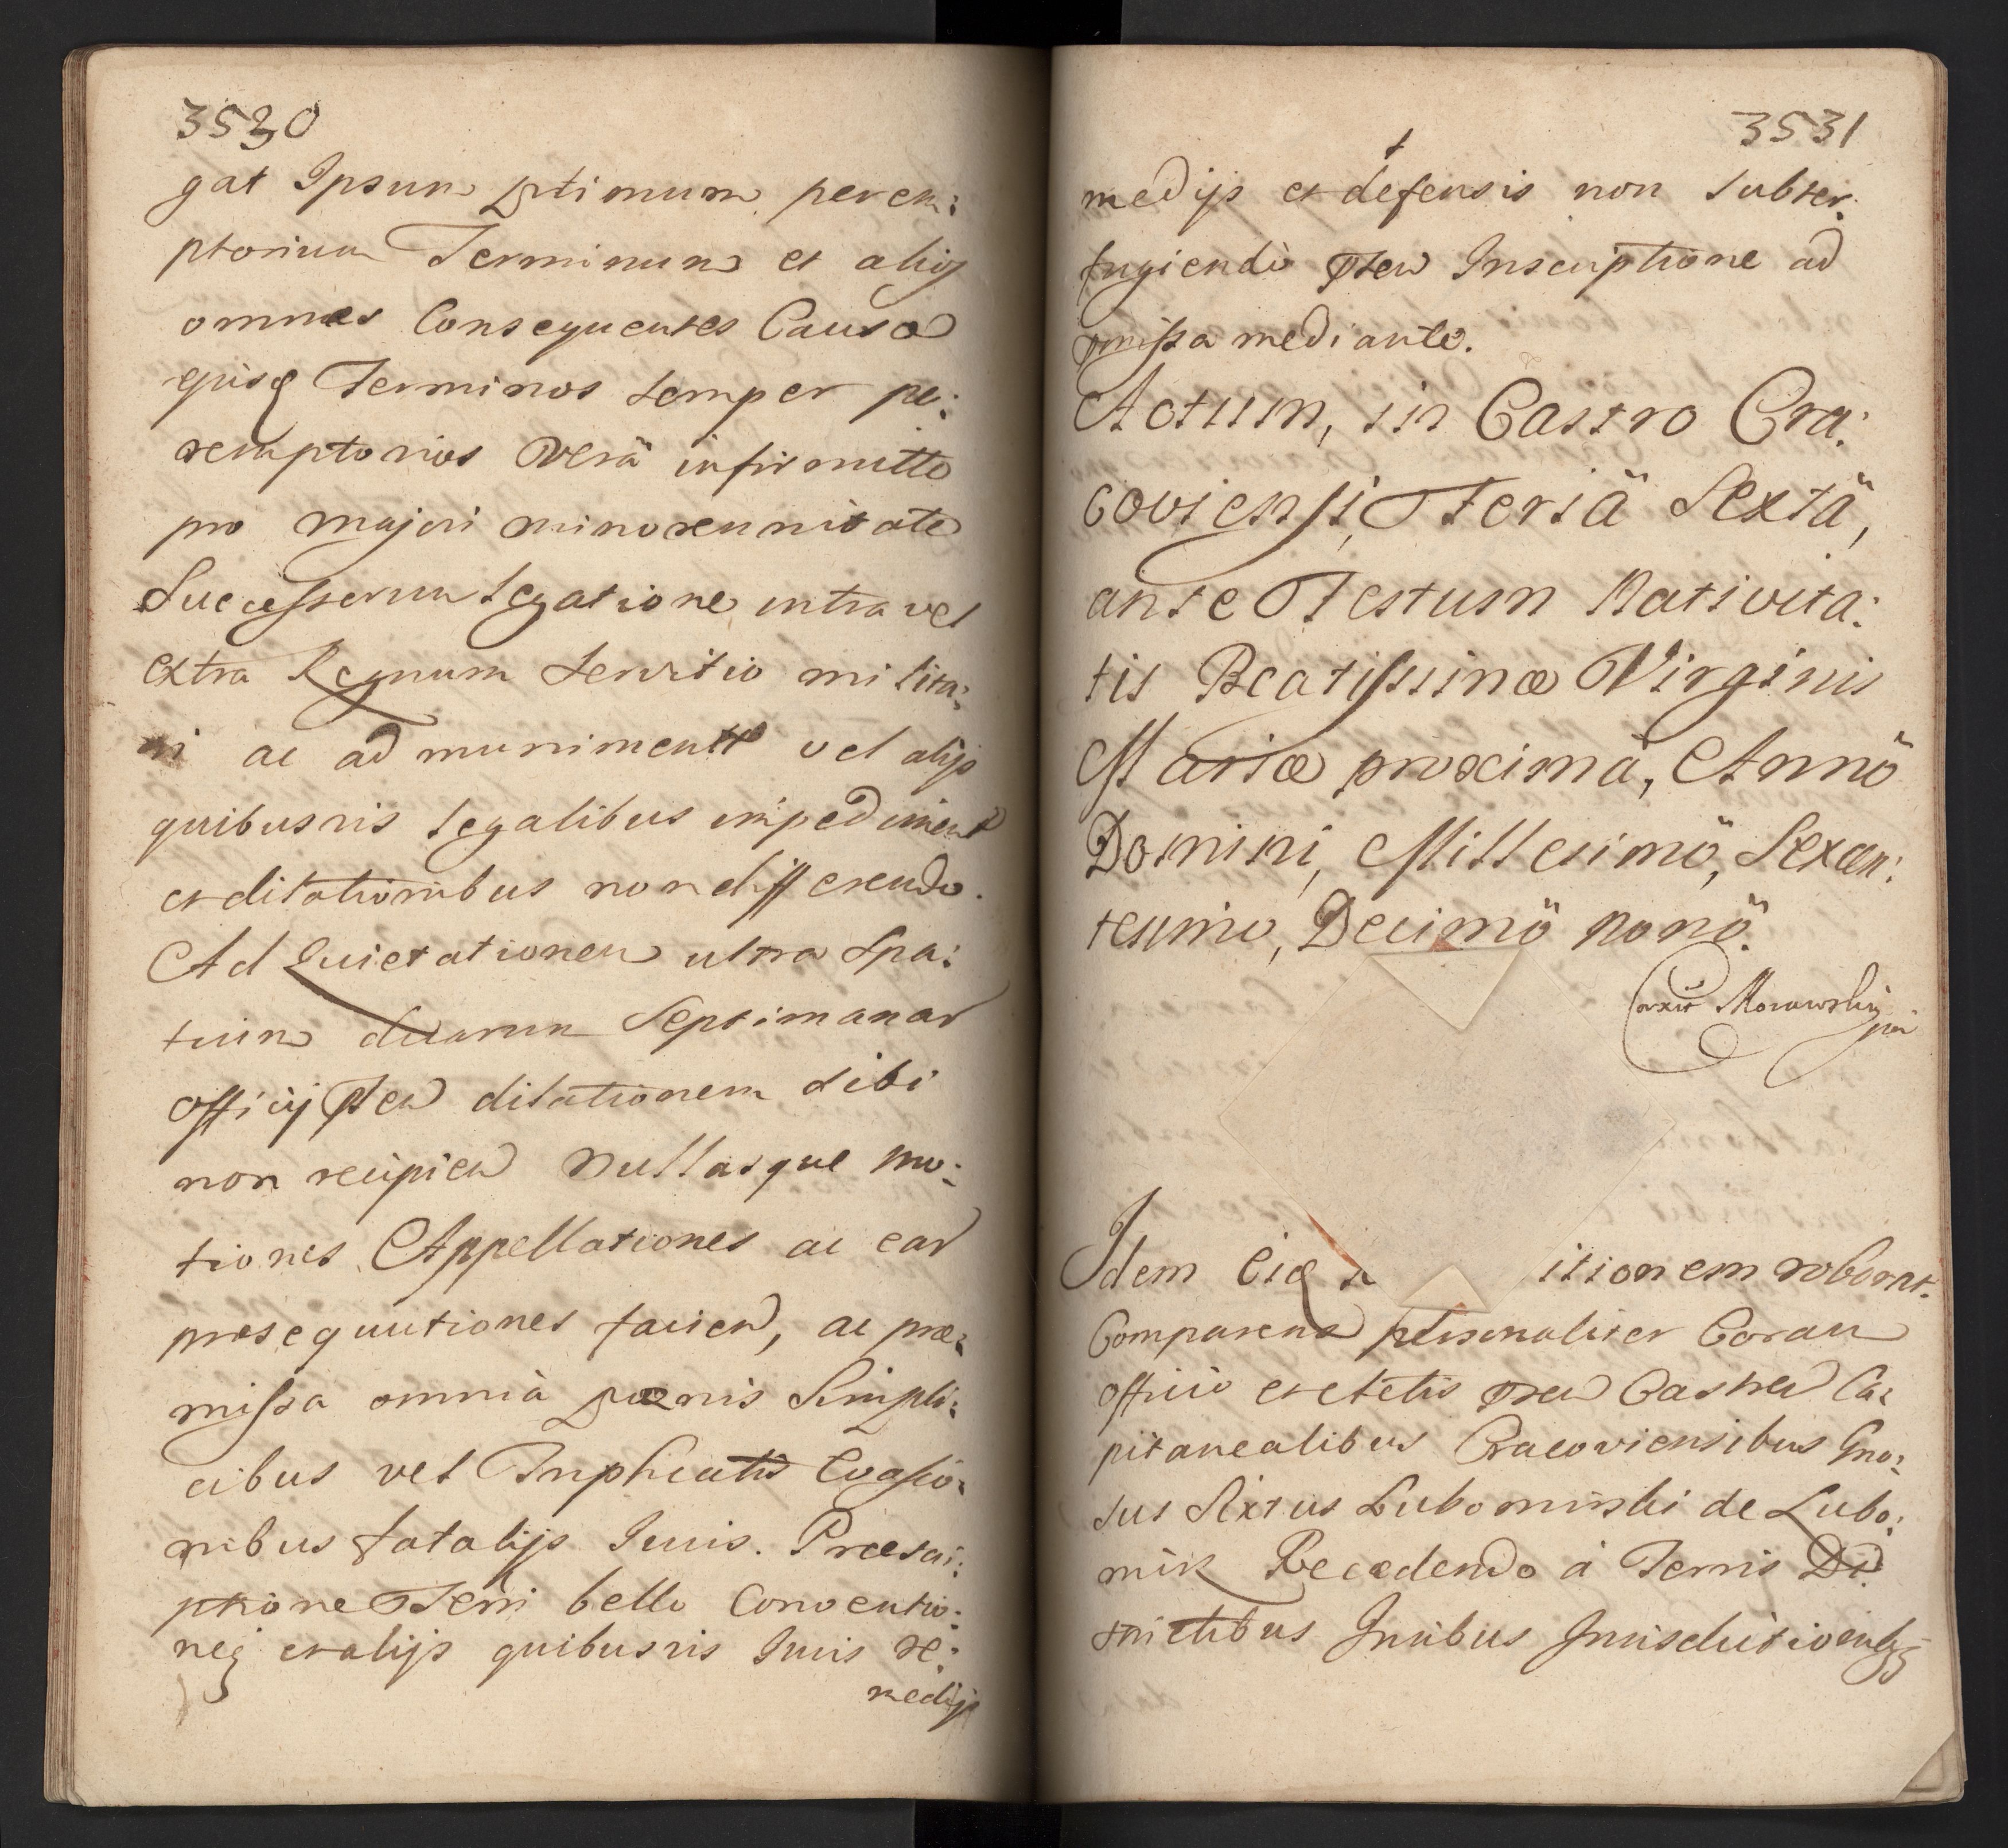 3530
gat Ipsum ptimum perem:
ptorium Terminum et alios
omnes Consequentes Causæ
ejusq Terminos semper pe:
remptorios verâ infirmitte
pro majori minorennitate
Successorum Legatione intra vel
extra Regnum servitio milita:
ri ac ad muniment vel alijs
quibusvis legalibus impediment
et dilationibus non differendo.
Ad Quietationem ultra spa:
tium duarum Septimanar
officij dilationem sibi
non recipien nullasque mo:
tiones Appellationes ac ear
prosequutiones facien, ac præ:
missa omnia pænis Simpli:
cibus vel Triplicatis Evasio:
nibus fatalijs Iuris. Præscri:
ptione Terri bello Convento:
neq et alijs quibusvis Iuris re:
medijs
3531
medijs et defensis non subter:
fugiendô Inscriptione ad
pmissa mediante.
Actum, in Castro Cra:
coviensi, Feriâ Sextâ,
ante Festum Nativita:
tis Beatissimæ Virginis
Mariæ proximâ, Annô
Domini, Millesimô, Sexcen:
tesimo, Decimô nonô.
Corxit Morawskij
mp
Idem itionem roborat.
Comparens psonaliter Coram
officio et actis Castren Ca:
pitanealibus Cracoviensibus Gno:
sus Sixtus Lubomirski de Lubo:
mirz Recedendo à Terris Di
strictibus Iuribus Iurisdictionibq